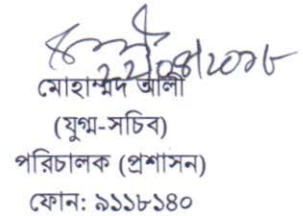 মোহাম্মদ আলী
(যুগ্ম-সচিব)
পরিচালক (প্রশাসন)
ফোন: ৯১১৮১৪০